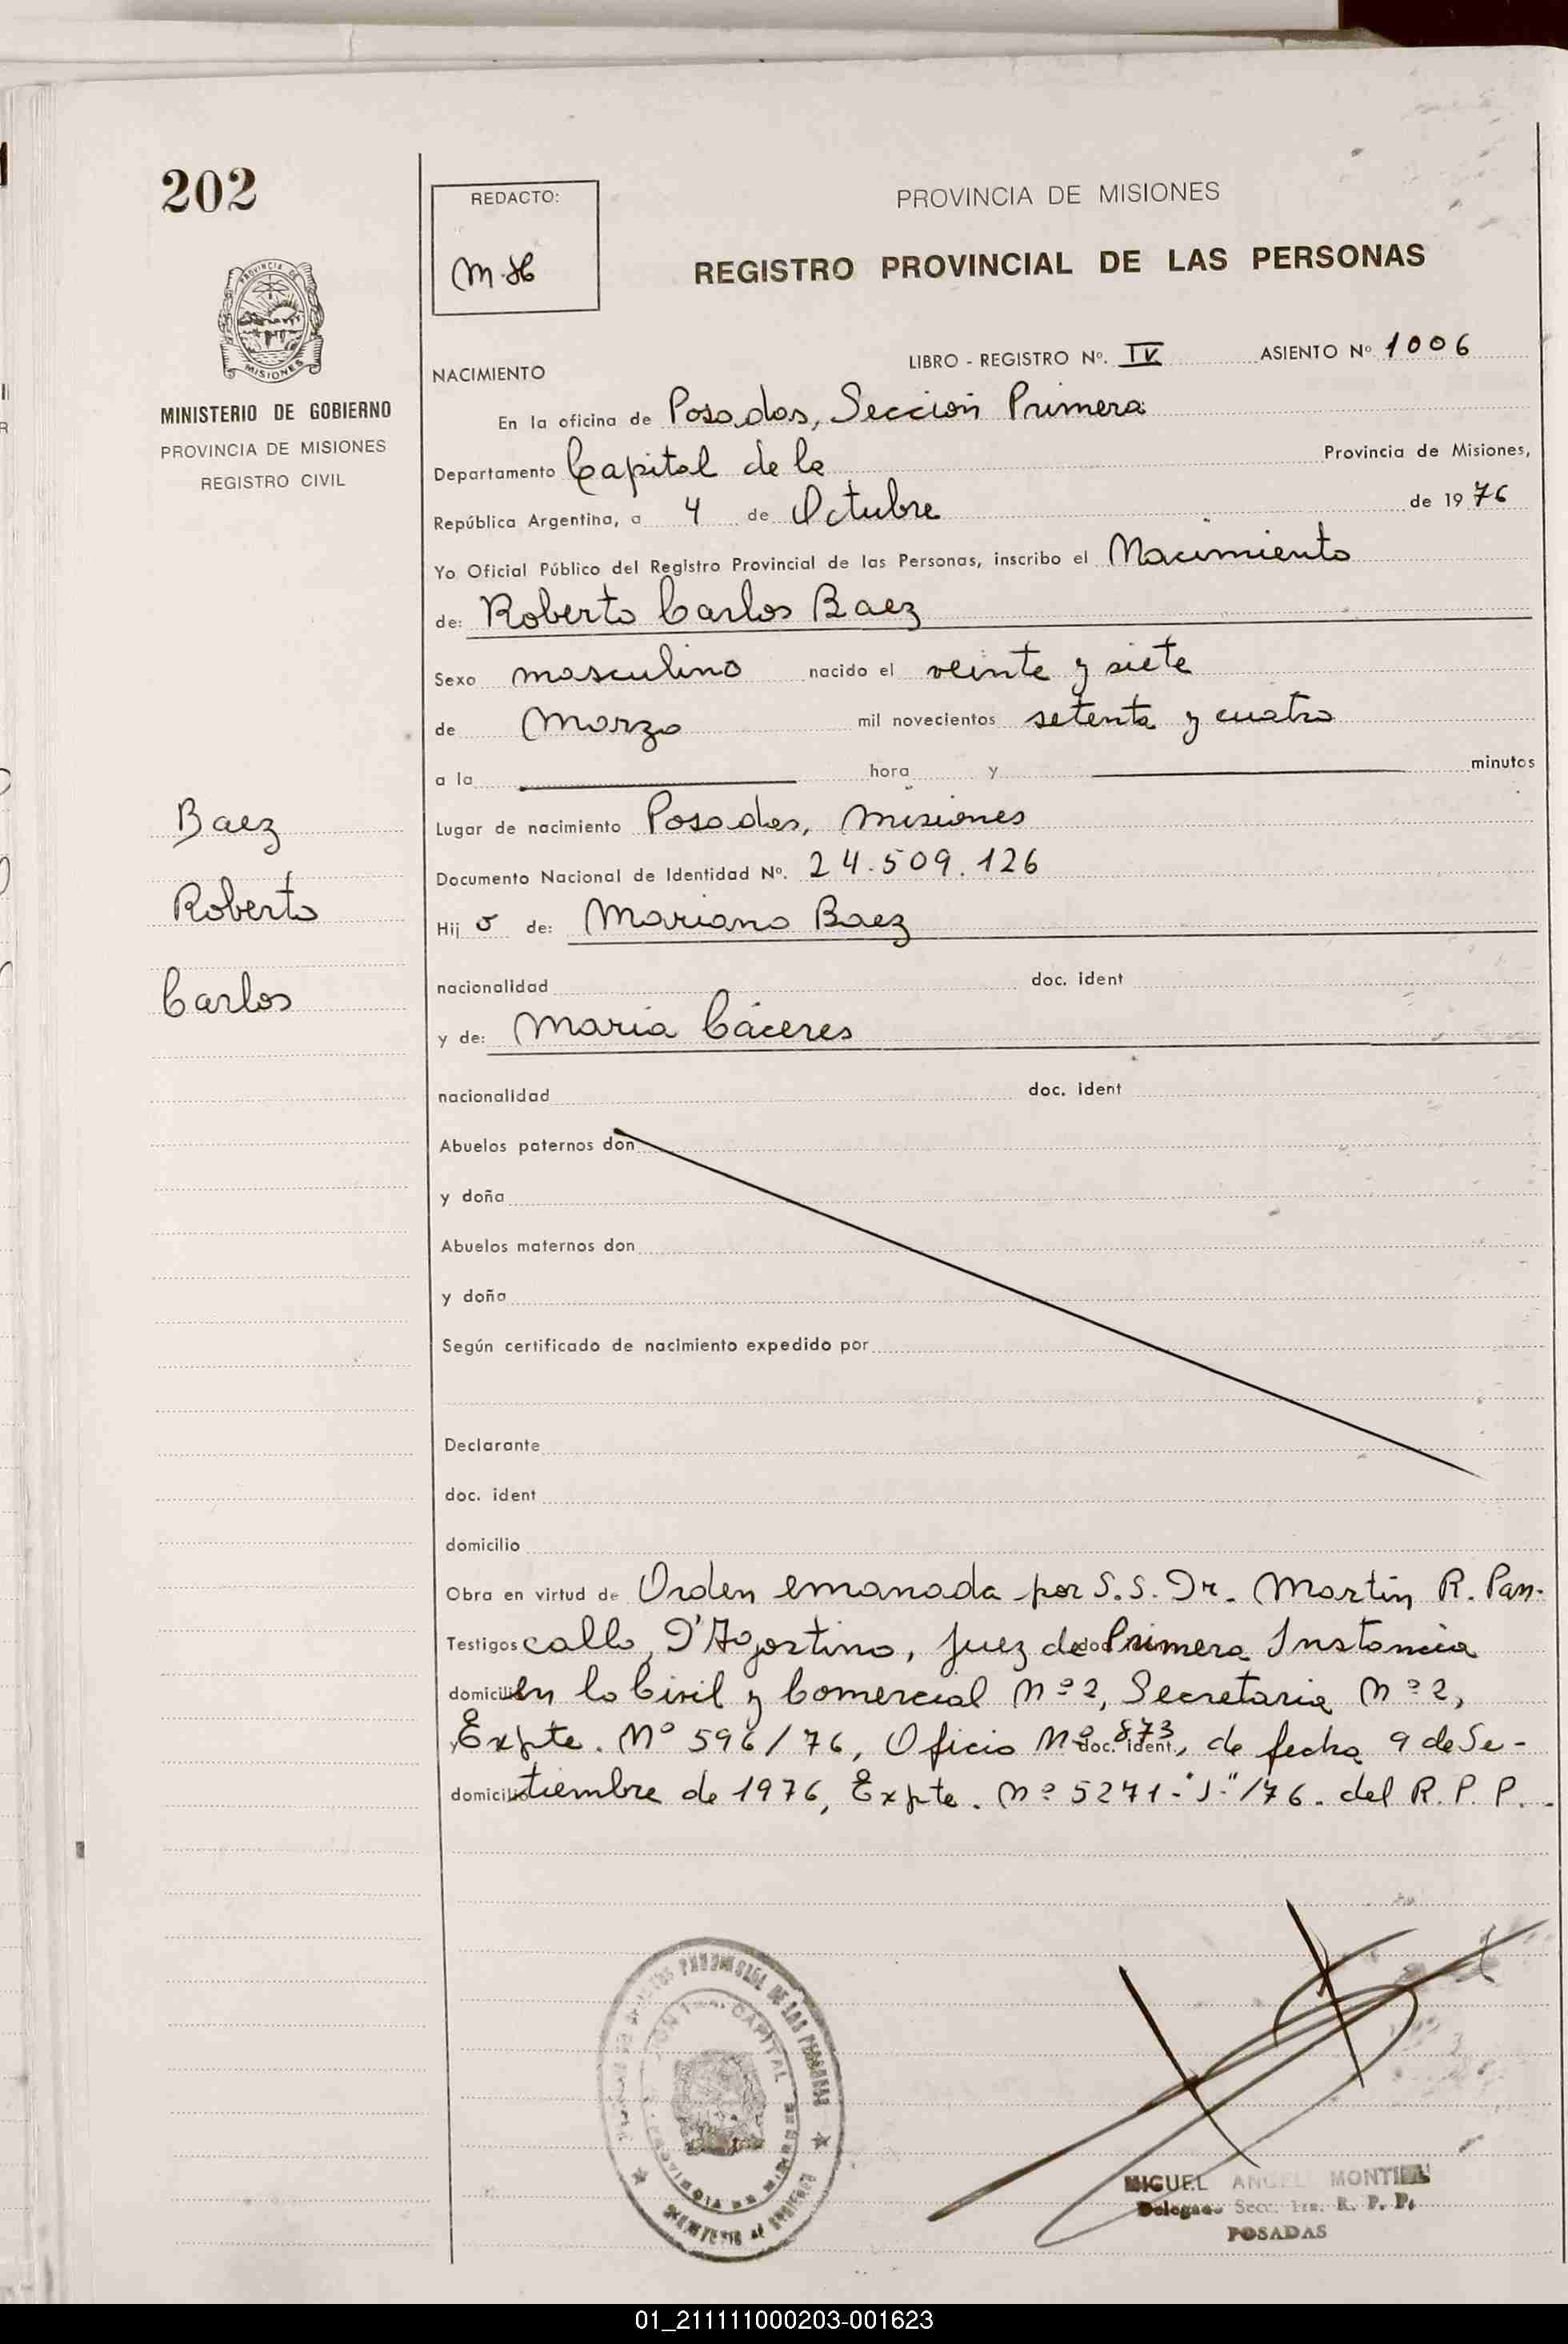 202
REDACTO:
M.H
PROVINCIA DE MISIONES
REGISTRO PROVINCIAL DE LAS PERSONAS
PROVINCIA DE
MISIONES
MINISTERIO DE GOBIERNO
PROVINCIA DE MISIONES
REGISTRO CIVIL
LIBRO - REGISTRO Nº. IV ASIENTO Nº 1006
NACIMIENTO
En la oficina de Posadas, Sección Primera
Departamento Capital de la Provincia de Misiones,
República Argentina, a 4 de Octubre de 1976
Yo Oficial Público del Registro Provincial de las Personas, inscribo el Nacimiento
de: Roberto Carlos Baez
Sexo masculino nacido el veinte y siete
de Marzo mil novecientos setenta y cuatro
a la hora y minutos
Baez
Roberto
Carlos
Lugar de nacimiento Posadas, Misiones
Documento Nacional de Identidad Nº. 24.509.126
Hij o de: Mariano Baez
nacionalidad doc. ident
y de: Maria Cáceres
nacionalidad doc. ident
Abuelos paternos don
y doña
Abuelos maternos don
y doña
Según certificado de nacimiento expedido por
Declarante
doc. ident
domicilio
Obra en virtud de Orden emanada por S.S. Dr. Martín R. Pan-
Testigos callo, D'Agostino, Juez de Primera Instancia
domicilio en lo Civil y Comercial Nº 2, Secretaria Nº 2,
y Expte. Nº 596/76, Oficio Nº 873 doc. ident, de fecha 9 de Se-
domicilio tiembre de 1976, Expte. Nº 5271-"J"/76. del R. P. P.-
PROVINCIAL DE LAS PERSONAS
CAPITAL
MIGUEL ANGEL MONTIEL
Delegado Secc. 1ra. R. P. P.
POSADAS
01_211111000203-001623